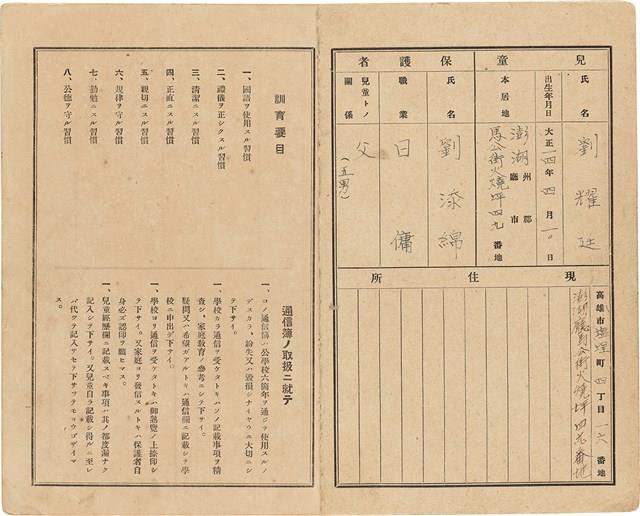 兒童
氏名 劉耀廷
出生年月日 大正一四年四月一〇日
本居地 澎湖州廳郡市馬公街火燒坪四九番地
保護者
氏名 劉添綿
職業 日傭
兒童トノ關係 父(五男)
現住所
高雄市塩埕町四丁目一六番地
澎湖廳馬公街火燒坪四九番地
訓育要目
一、國語ヲ使用スル習慣
二、禮儀ヲ正シクスル習慣
三、清潔ニスル習慣
四、正直ニスル習慣
五、親切ニスル習慣
六、規律ヲ守ル習慣
七、勤勉ニスル習慣
八、公德ヲ守ル習慣
通信簿ノ取扱ニ就テ
一、コノ通信簿ハ公學校六箇年ヲ通ジテ使用スルノ
デスカラ、紛失又ハ毀損シナイヤウニ大切ニシ
テ下サイ。
一、學校カラ通信ヲ受ケタトキハソノ記載事項ヲ精
査シ、家庭敎育ノ參考ニシテ下サイ。
疑問又ハ希望ガアルトキハ通信欄ニ記載シテ學
校ニ申出デ下サイ。
一、學校ヨリ通信ヲ受ケタトキハ御熟覽ノ上捺印シ
テ下サイ。又家庭ヨリ發信スルトキハ保護者自
身必ズ認印ヲ願ヒマス。
一、兒童經歷欄ニ記載スベキ事項ハ其ノ都度漏ナク
記入シテ下サイ。又兒童自ラ記載シ得ルニ至レ
バ代ツテ記入サセテ下サツテモヨウゴザイマ
ス。